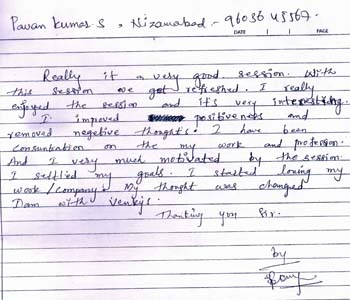 Pavan Kumar S, Nizamabad - 96036 45567.
DATE PAGE
Really it a very good session. With
this session we got refreshed. I really
enjoyed the session and it's very interesting.
I improved positiveness and
removed negetive thought's. I have been
on the my work and profession.
And I very much motivated by the session.
I settled my goals. I started loving my
work/company. My thought was changed
with Venkys.
Thanking you Sir.
by